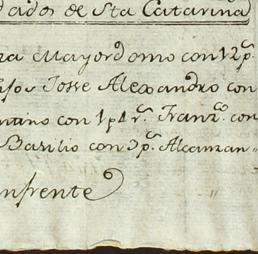 dados de Sta Catarina
ra Mayordomo con 12 p.
Josse Alexandro con
con 1 p 4 r.s Franz.co con
Basilio con 9 p.s Alcanzan-
enfrente